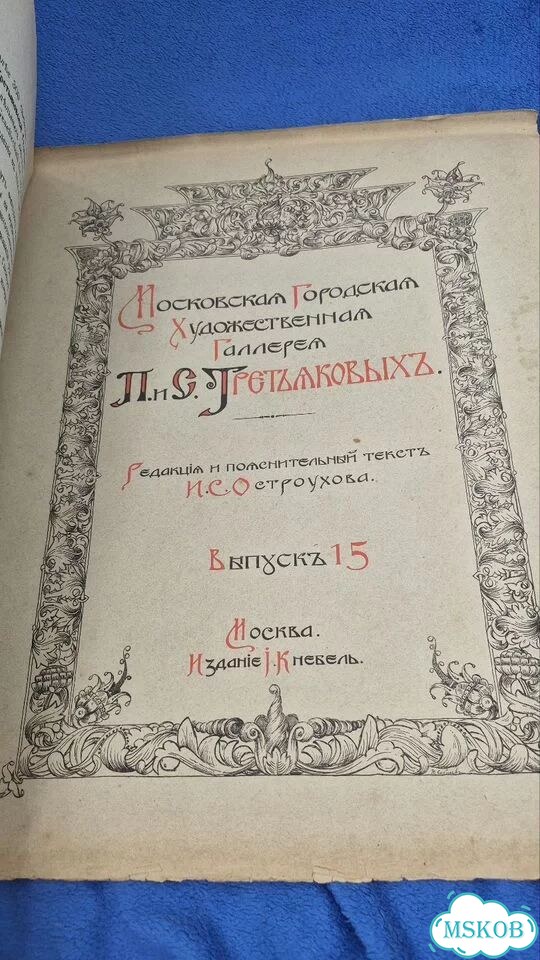 Московская Городская
Художественная
Галлерея
П. и С. Третьяковыхъ.
Редакція и пояснительный текстъ
И.С. Остроухова.
Выпускъ 15
Москва.
Изданіе І. Кнебель.
MSKOB